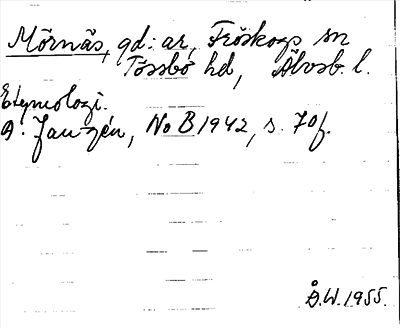 Mörnäs, gd:ar, Fröskogs sn
Tössbo hd, Älvsb. l.
Etymologi.
A. Janzén, No B 1942, s. 70f.
Å.W. 1955.